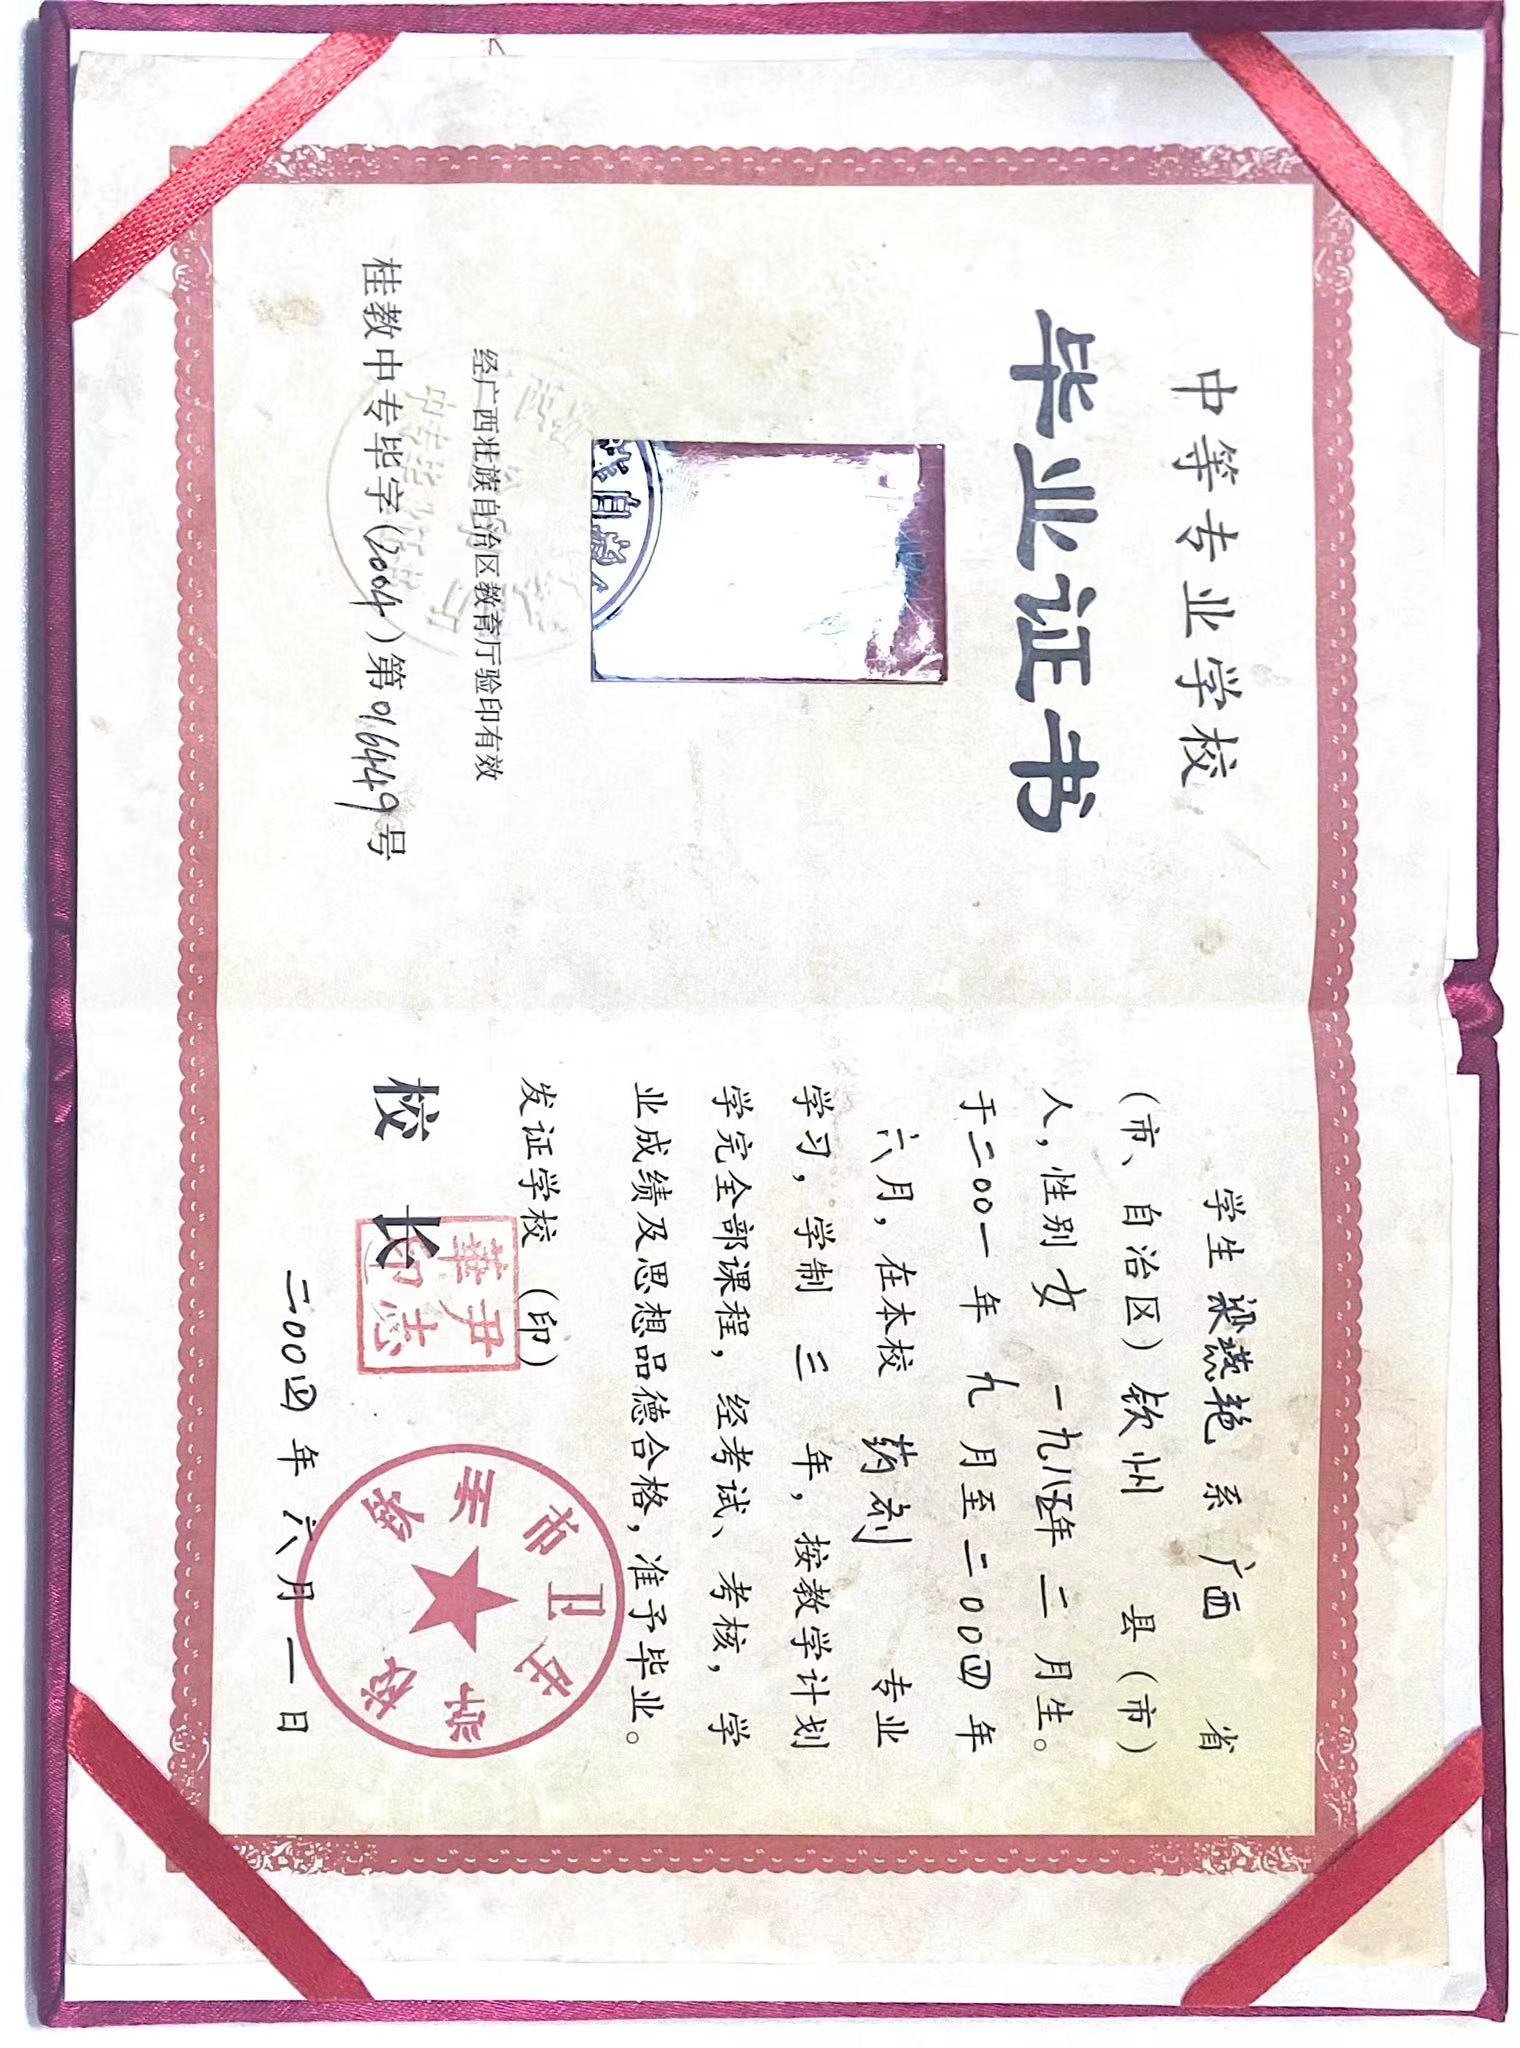 中等专业学校
毕业证书
经广西壮族自治区教育厅验印有效
桂教中专毕字(2004)第016449号
学生 梁燕艳 系 广西 省
(市、自治区) 钦州 县(市)
人,性别 女 一九八五年 二 月生。
于二00一年 九 月至二00四年
六月,在本校 药剂 专业
学习,学制 三 年,按教学计划
学完全部课程,经考试、考核,学
业成绩及思想品德合格,准予毕业。
发证学校(印)
校长
尹志華印
二00四年六月一日
市卫
学校